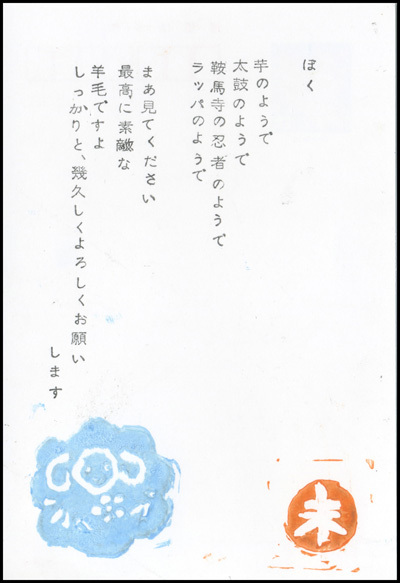 ぼく
芋のようで
太鼓のようで
鞍馬寺の忍者のようで
ラッパのようで
まあ見てください
最高に素敵な
羊毛ですよ
しっかりと、幾久しくよろしくお願い
します
未